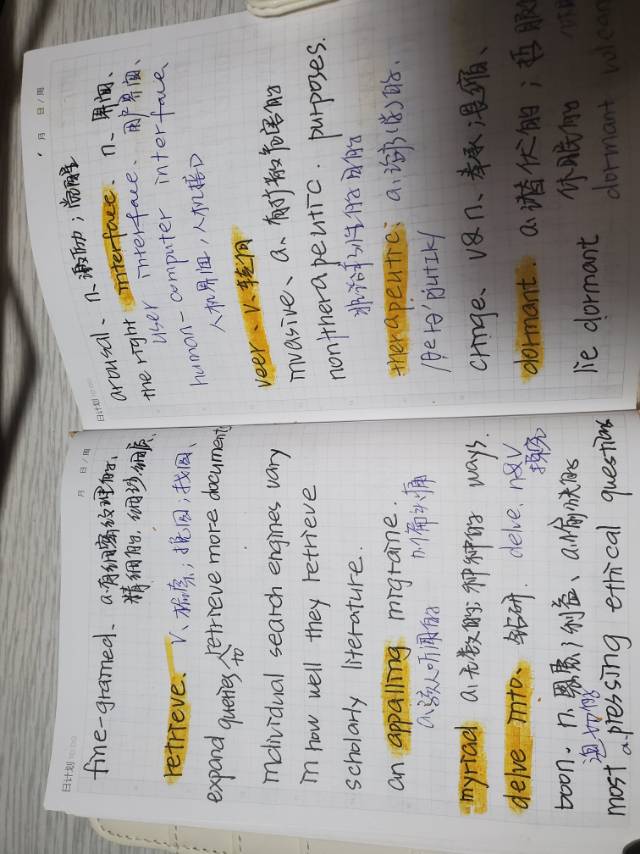 日计划
月 日/周
fine-grained、a.有细密纹理的、
精细的,细致的,
retrieve、v、检索;挽回;找回、
expand queries to retrieve more documents
Individual search engines vary
in how well they retrieve
scholarly literature.
an appalling migraine.
a.骇人听闻的 n偏头痛
myriad a.无数的;种种的 ways.
delve into、钻研. delve、n&v
boon、n.恩惠;利益、a.愉快的
迫切的
most a.pressing ethical questions
日计划
月 日/周
arousal、n.激励;觉醒
the right interface、n、界面、
user interface、用户界面、
human-computer interface
人机界面,人机接口
veer、v、转向
invasive、a、有
nontherapeutic. purposes.
非治疗性的目的
therapeutic、a.治疗(法)的.
cringe、v&n、奉承;畏缩、
dormant. a.潜伏的;
休眠的
lie dormant
dormant